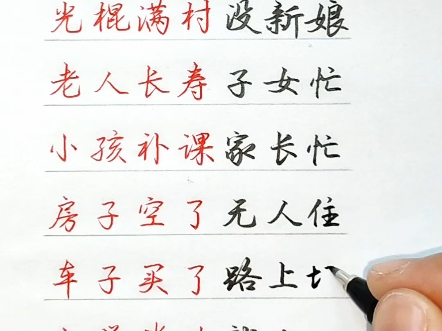 光棍满村没新娘
老人长寿子女忙
小孩补课家长忙
房子空了无人住
车子买了路上